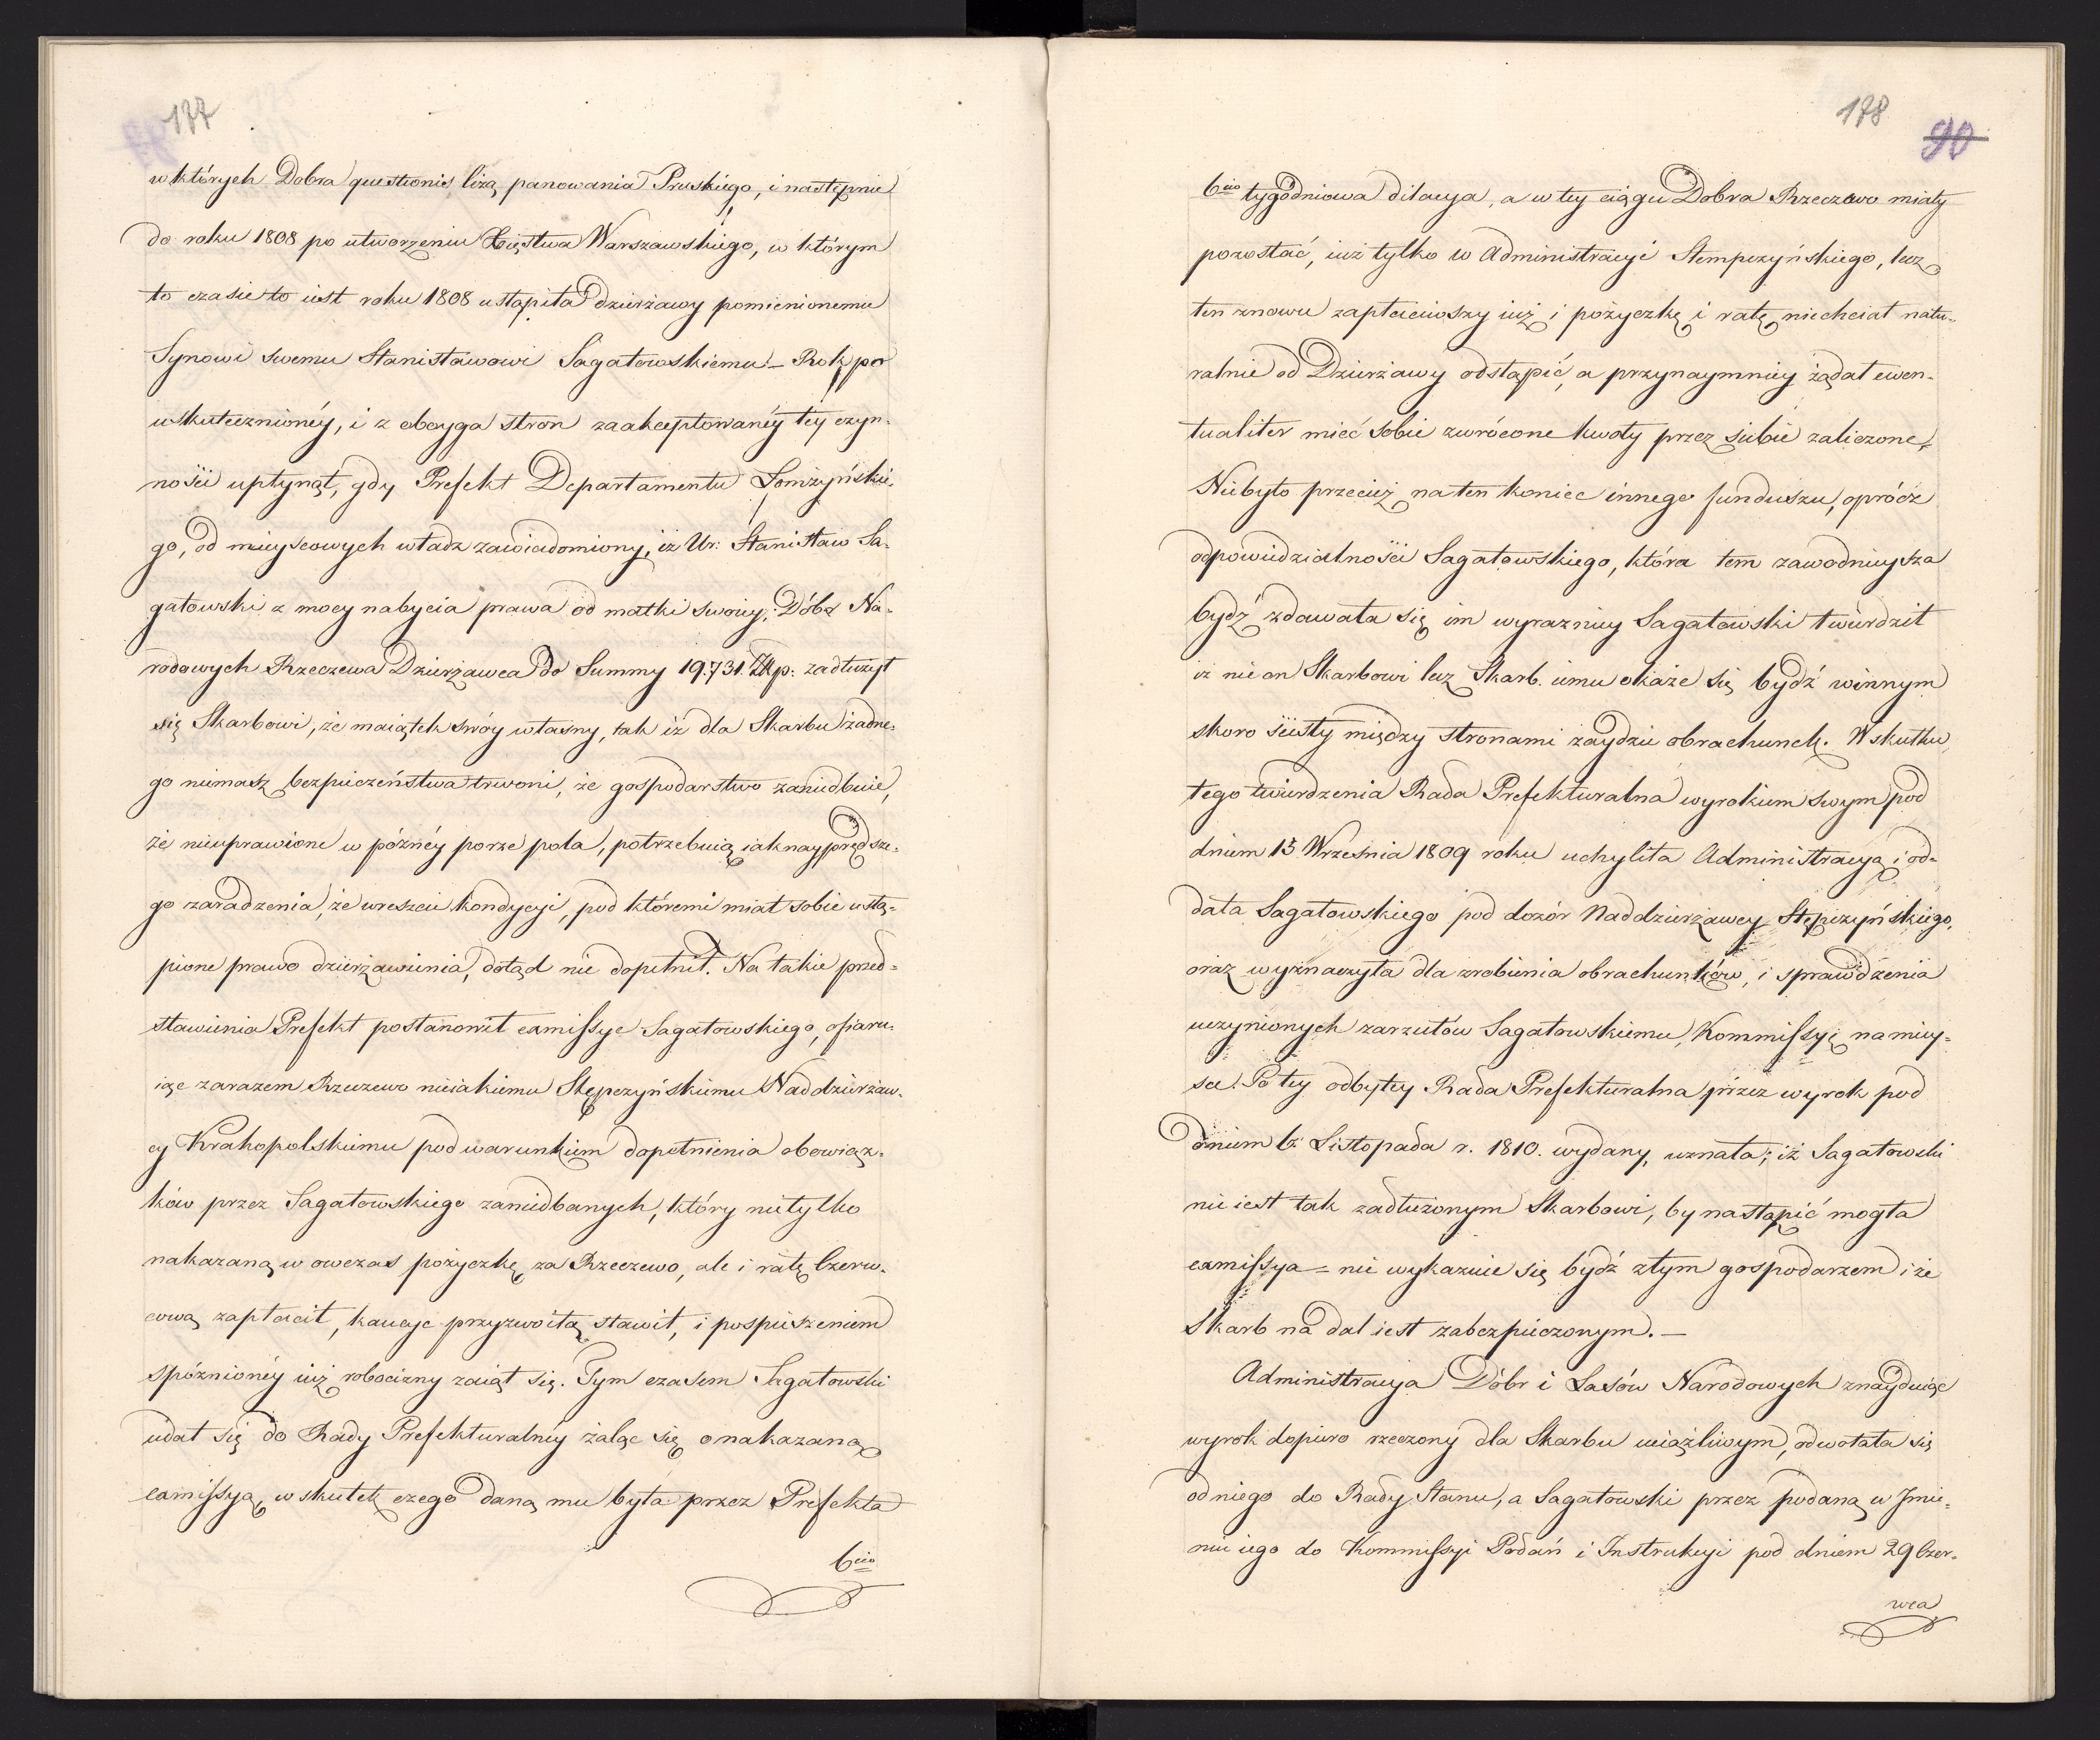 177
w których Dobra questionis liżą panowania Pruskiego, i następnie
do roku 1808 po utworzeniu Xięstwa Warszawskiego, w którym
to czasie to iest roku 1808 ustąpiła dzierżawy pomienionemu
Synowi swemu Stanisławowi Sagatowskiemu. – Rok po
uskutecznionéy, i z oboyga stron zaakceptowanéy téy czyn-
ności upłynął, gdy Prefekt Departamentu Łomżyńskie-
go, od mieyscowych władz zawiadomiony, iż Ur: Stanisław Sa-
gatowski z mocy nabycia prawa od matki swoiey, Dóbr Na-
rodowych Rzeczewa Dzierżawca do Summy 19.731. Złp: zadłużył
się Skarbowi, że maiątek swóy własny, tak iż dla Skarbu żadne-
go niemasz bezpieczeństwa trwoni, że gospodarstwo zaniedbuie,
że nieuprawione w późnéy porze pola, potrzebuią iaknayprędsze-
go zaradzenia, że wreszcie kondycyi, pod któremi miał sobie ustą-
pione prawo dzierżawienia, dotąd nie dopełnił. Na takie przed-
stawienia Prefekt postanowił exmissye Sagatowskiego, ofiaru-
iąc zarazem Rzeczewo nieiakiemu Stępczyńskiemu Naddzierżaw-
cy Krakopolskiemu pod warunkiem dopełnienia obowiąz-
ków przez Sagatowskiego zaniedbanych, który nietylko
nakazaną w owczas pożyczkę za Rzeczewo, ale i ratę Czerw-
cową zapłacił, kaucye przyzwoitą stawił, i pospieszeniem
spóźnionéy iuż robocizny zaiął się. Tym czasem Sagatowski
udał się do Rady Prefekturalnéy żaląc się o nakazaną
exmissyą, w skutek czego daną mu była przez Prefekta
6cio
178
90
6cio tygodniowa dilacya, a w téy ciągu Dobra Rzeczewo miały
pozostać, iuż tylko w Administracyi Stempczyńskiego, lecz
ten znowu zapłaciwszy iuż i pożyczkę i ratę niechciał natu-
ralnie od Dzierżawy odstąpić, a przynaymniey żądał ewen-
tualiter mieć sobie zwrócone kwoty przez siebie zaliczone,
Niebyło przecież na ten koniec innego funduszu, oprócz
odpowiedzialności Sagatowskiego, która tem zawodnieysza
bydź zdawała się im wyrazniey Sagatowski twierdził
iż nie on Skarbowi lecz Skarb iemu okaże się bydź winnym
skoro ścisły między stronami zaydzie obrachunek. W skutku
tego twierdzenia Rada Prefekturalna wyrokiem swym pod
dniem 15 Września 1809 roku uchyliła Administracyą i od-
dała Sagatowskiego pod dozór Naddzierżawcy Stępczyńskiego,
oraz wyznaczyła dla zrobienia obrachunków, i sprawdzenia
uczynionych zarzutów Sagatowskiemu, Kommissyę na miey-
sce. Po téy odbytey Rada Prefekturalna przez wyrok pod
dniem 6. Listopada r. 1810. wydany, uznała, iż Sagatowski
nie iest tak zadłużonym Skarbowi, by nastąpić mogła
exmissya – nie wykazuie się bydź złym gospodarzem i że
Skarb na dal iest zabezpieczonym. –
Administracya Dóbr i Lasów Narodowych znayduiąc
wyrok dopiero rzeczony dla Skarbu uciążliwym, odwołała się
od niego do Rady Stanu, a Sagatowski przez podaną w Jmie-
niu iego do Kommissyi Podań i Instrukcyi pod dniem 29 Czer-
wca